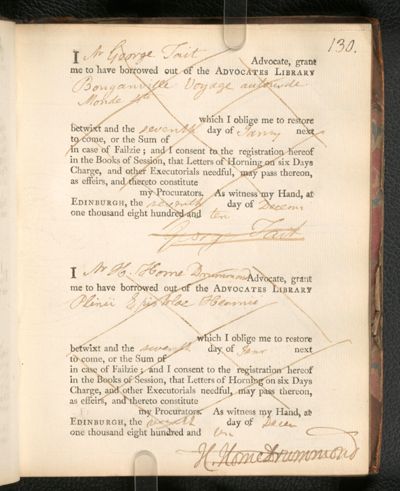 130.
I Mr George Tait Advocate, grant
me to have borrowed out of the ADVOCATES LIBRARY
Bouganville Voyage autour de
Monde 4to
which I oblige me to restore
betwixt and the seventh day of Janry next
to come, or the Sum of
in case of Failzie; and I consent to the registration hereof
in the Books of Session, that Letters of Horning on six Days
Charge, and other Executorials needful, may pass thereon,
as effeirs, and thereto constitute
my Procurators. As witness my Hand, at
EDINBURGH, the seventh day of Decem
one thousand eight hundred and ten
George Tait
I Mr H. Home Drummond Advocate, grant
me to have borrowed out of the ADVOCATES LIBRARY
Plinii Epistolae
which I oblige me to restore
betwixt and the seventh day of Janr next
to come, or the Sum of
in case of Failzie; and I consent to the registration hereof
in the Books of Session, that Letters of Horning on six Days
Charge, and other Executorials needful, may pass thereon,
as effeirs, and thereto constitute
my Procurators. As witness my Hand, at
EDINBURGH, the seventh day of Decem
one thousand eight hundred and ten
H. Home Drummond